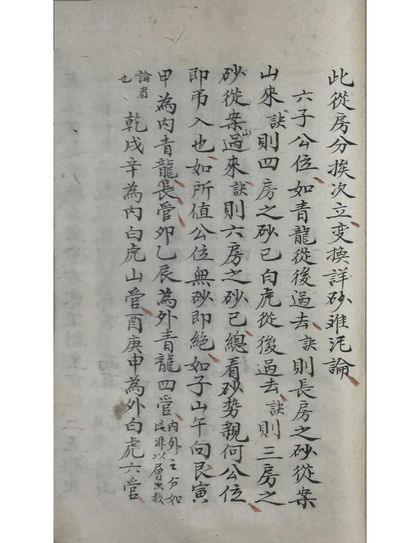 此從房分挨次立变換詳砂难泥論
六子公位如青龍從後過去訣則長房之砂從案
山來訣則四房之砂已白虎從後過去訣則三房之
砂從案山過來訣則六房之砂已總看砂勢親何公位
即弔入也如所值公位無砂即絕如子山午向艮寅
甲為內青龍長管卯乙辰為外青龍四管內外之分如此非以層數
論者也乾戌辛為內白虎山管酉庚申為外白虎六管